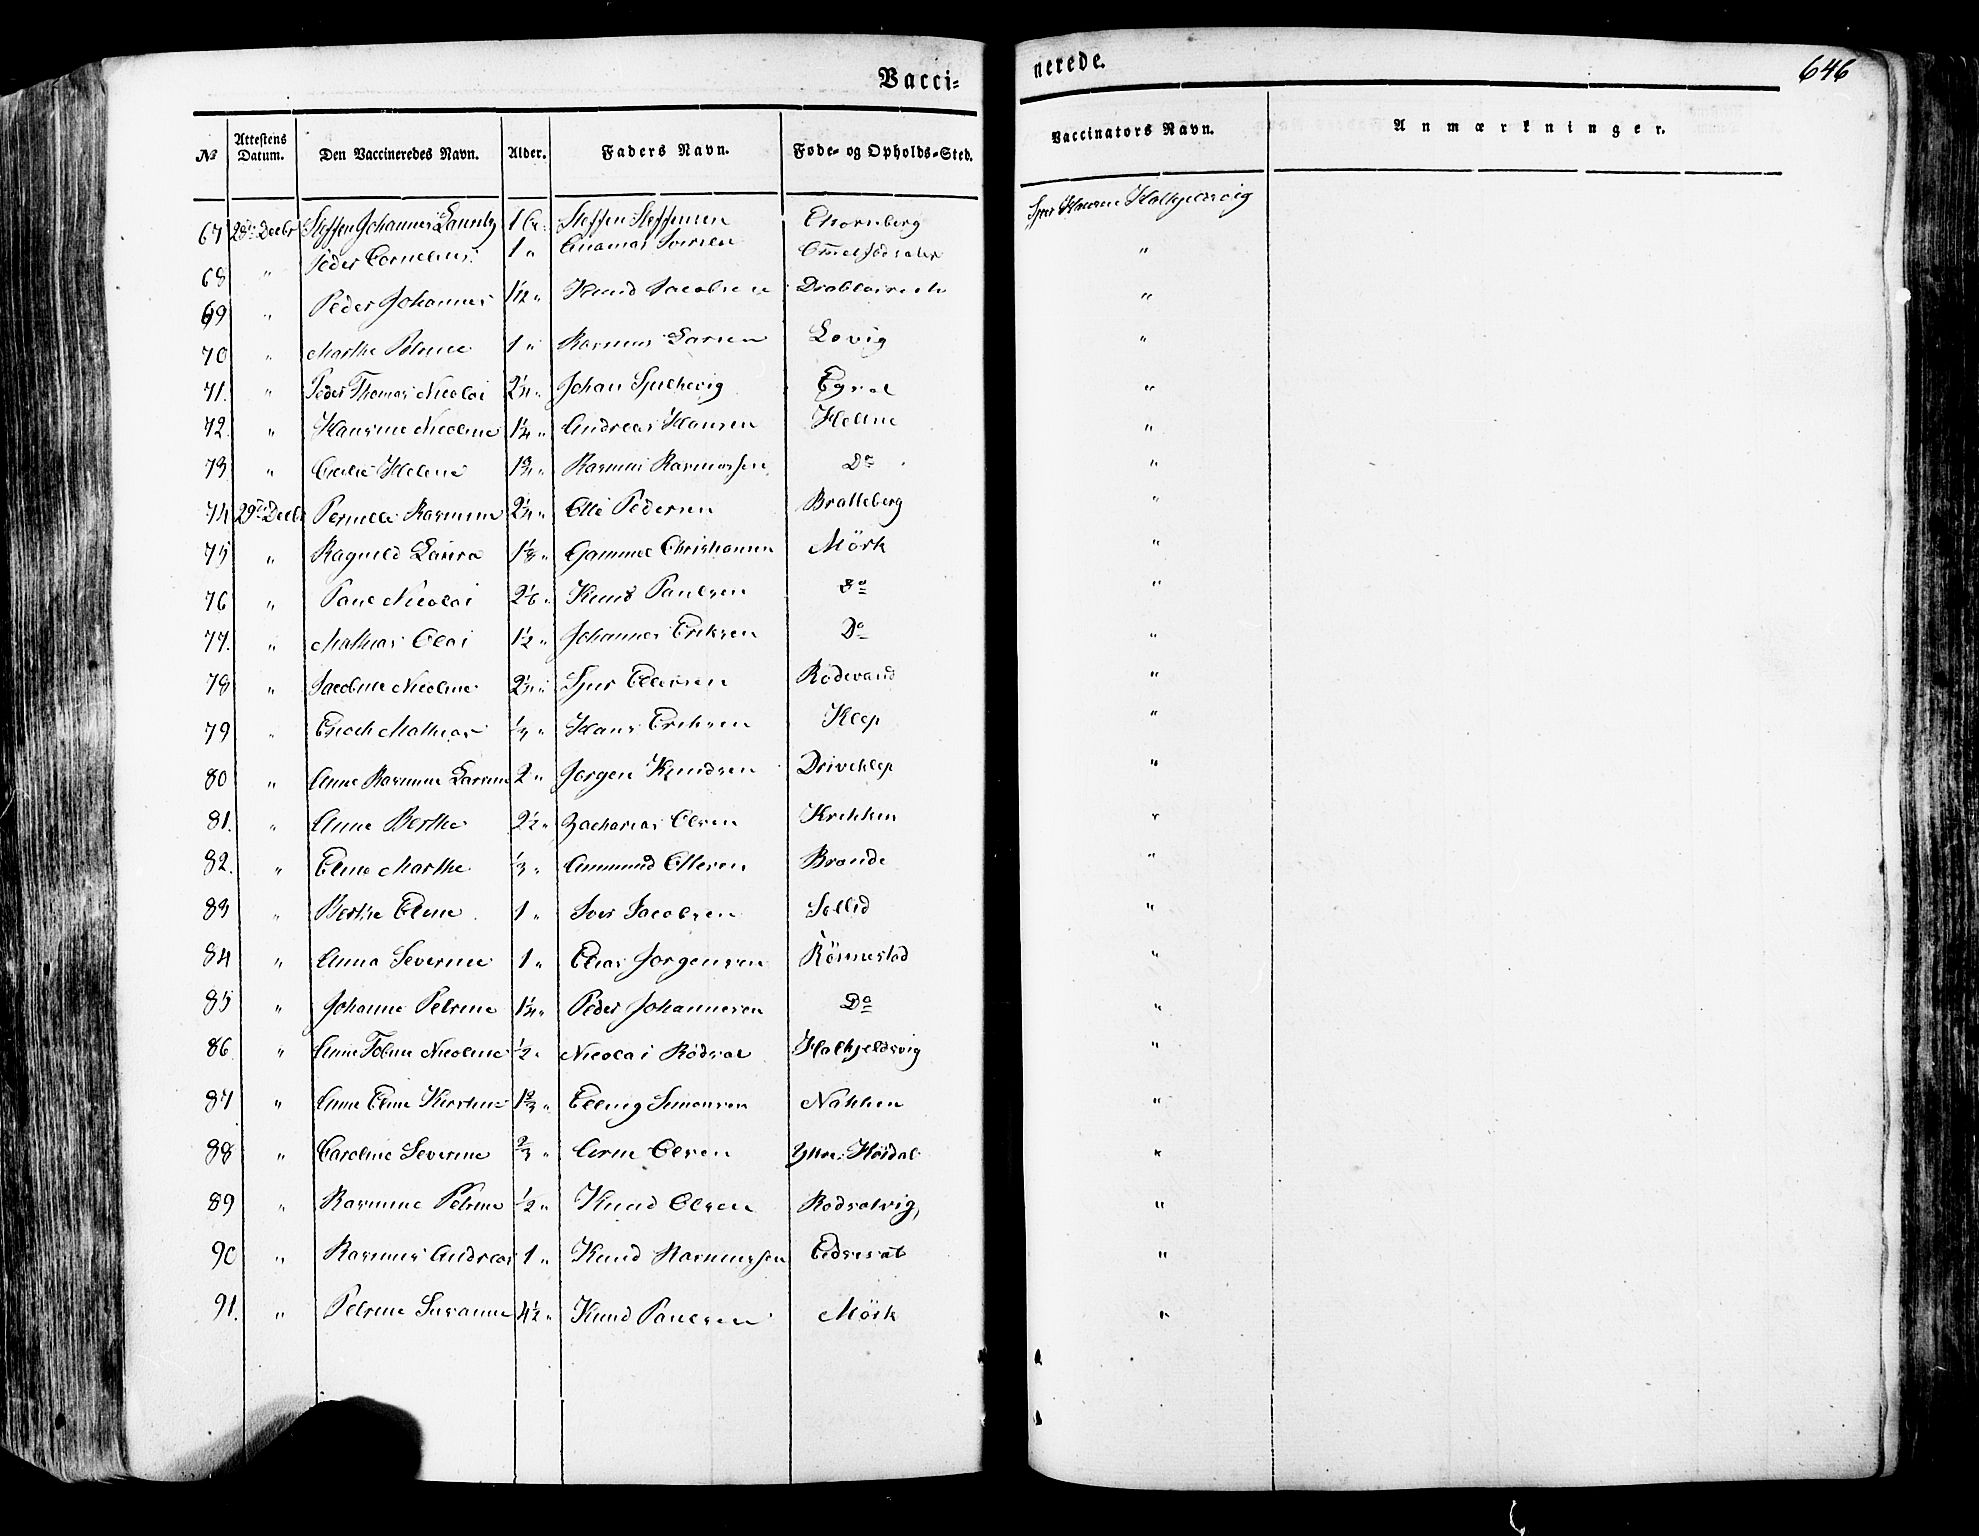 Vacci=
nerede.
646
№ Attestens Datum. Den Vaccineredes Navn. Alder. Faders Navn. Føde- og Opholds-Sted. Vaccinators Navn. Anmærkninger.
67 28de Decbr Steffen Johannes 1 Steffen Steffensen Thornberg Sjur Hansen Halkjelsvig
68 " Peder Cornelius 1 " Iversen "
69 " Peder Johannes 1½ " Knud Jacobsen "
70 " Marthe Petrine 1 " Rasmus Larsen Løvig "
71. " Peder Thomas Nicolai 2¼ " Johan "
72. " Hansine Nicoline 1¼ " Andreas Hansen "
73 " Helene 1¾ " Rasmus Rasmussen Do "
74 29de Decbr Pernille Rasmine 2¼ " Ole Pedersen Bratteberg "
75 " Ragnild Laura 1⅓ " Gammel Christiansen Mörk "
76 " Paul Nicolai 2⅙ " Knud Paulsen Do "
77. " Mathias Olai 1½ " Johannes Eriksen Do "
78 " Jacobine Nicoline 2¼ " Sjur Rødevand "
79 " Enoch Mathias ⅓ " Hans Eriksen Klep "
80 " Anne Rasmine 2 " Jørgen Knudsen Driveklep "
81. " Anne Berthe 2½ " Zacharias Olsen Krikken "
82. " Eline Marthe ⅓ " Ammund Brande "
83 " Berthe Eline 1 " Iver Jacobsen Sollid "
84 " Anna Severine 1 " Elias Jørgensen Rönnestad "
85 " Johanne Petrine 1¼ " Peder Johannesen Do "
86 " Anne Nicoline ½ " Nicolai Rödsæt Halkjeldsvig "
87 " Anne Eline 1⅔ " Elling Simonsen Nakken "
88 " Caroline Severine ⅔ " Arne Olsen "
89 " Rasmine Petrine ½ " Knud Olsen Rødsætvig, "
90 " Rasmus Andreas 1 " Knud Rasmussen "
91. " Petrine Susanne 4½ " Knud Paulsen Mörk "